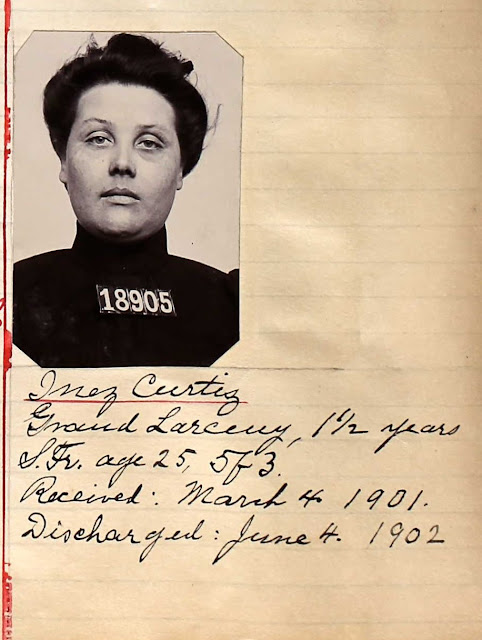 18905
Inez Curtis
Grand Larceny, 1½ years
S.Fr. age 25, 5f3.
Received: March 4 1901.
Discharged: June 4. 1902